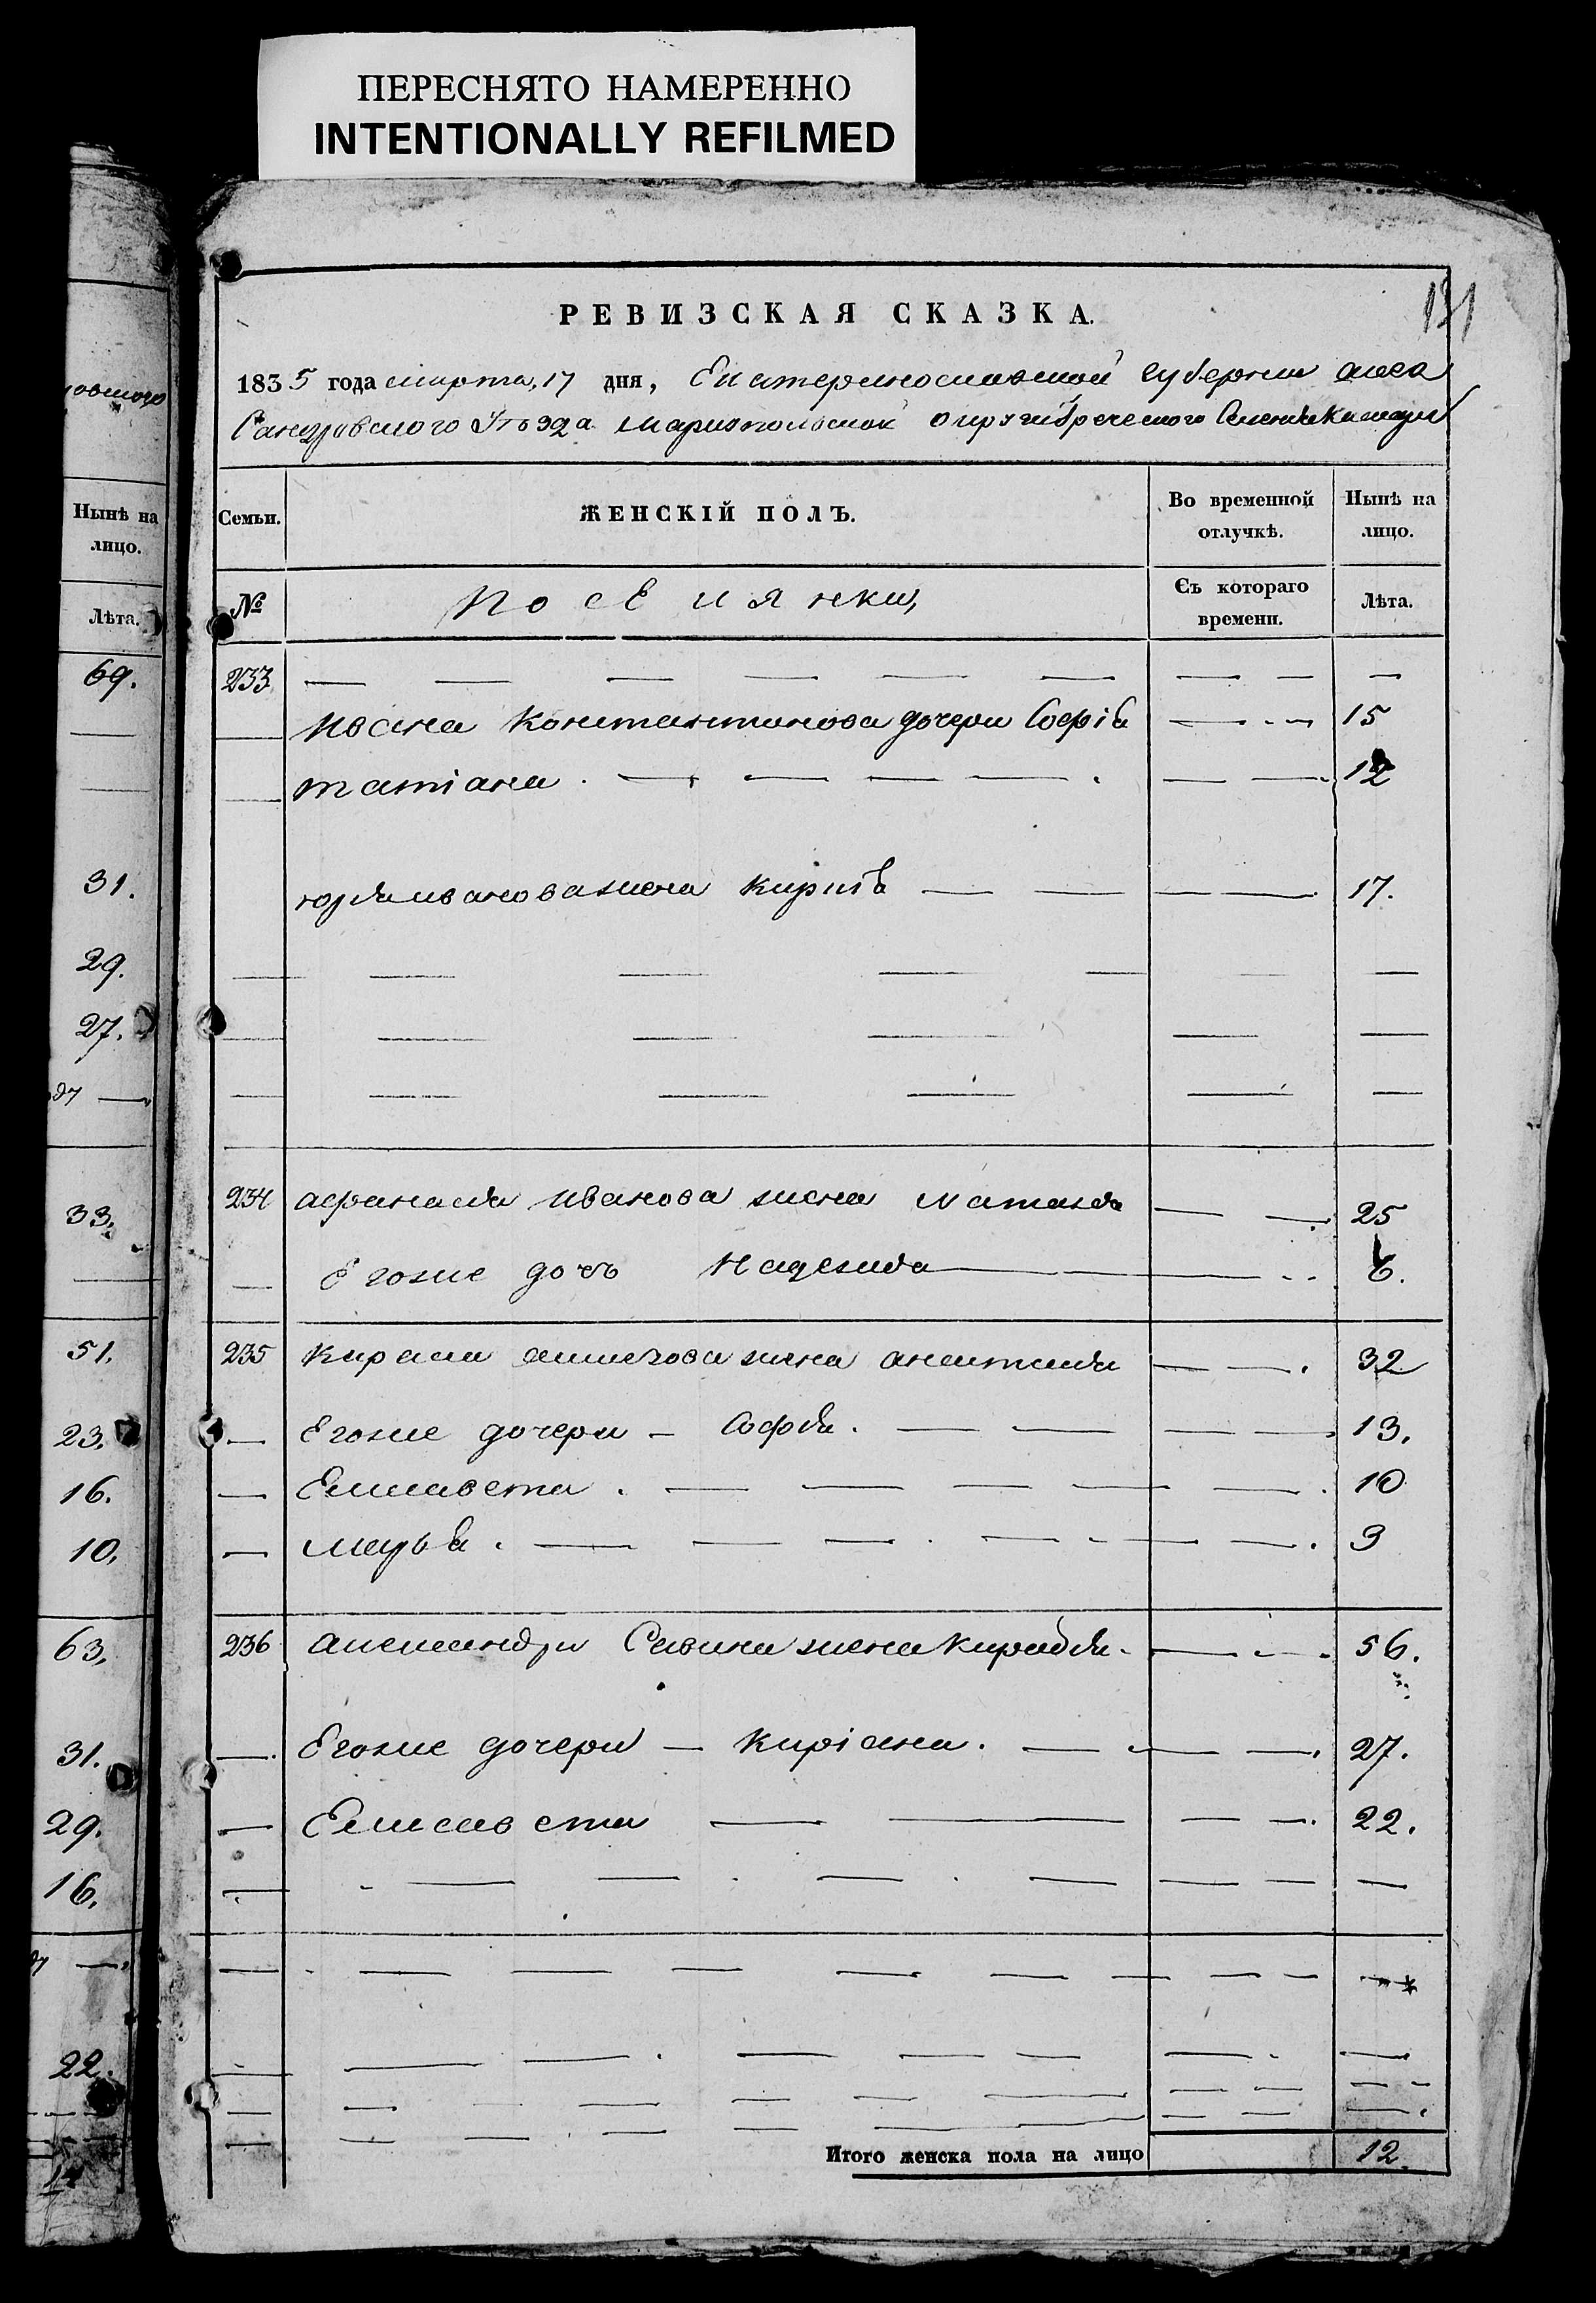 ПЕРЕСНЯТО НАМЕРЕННО
INTENTIONALLY REFILMED
131
РЕВИЗСКАЯ СКАЗКА.
1835 года марта, 17 дня, Екатеринославской губернии алек
сандровского уѣзда мариопольской округи греческого Селения
Семьи.
ЖЕНСКІЙ ПОЛЪ.
Во временной отлучкѣ.
Нынѣ на лицо.
№
Поселянки,
Съ котораго времени.
Лѣта.
233
Ивана Константинова дочери Софіа 15
татіана 12
юрія иванова жена 17.
234 афанасія Иванова жена 25
Егоже дочь Надежда 6.
235 жена анастасія 32
Егоже дочери - Софія. 13.
Елисавета. 10
марія. 3
236 александра Савина жена 56.
Егоже дочери - Киріана. 27.
Елисавета 22.
Итого женска пола на лицо 12.
Нынѣ на лицо.
Лѣта.
69.
31.
29.
27.
33.
51.
23.
16.
10.
63.
31.
29.
16.
22.
14